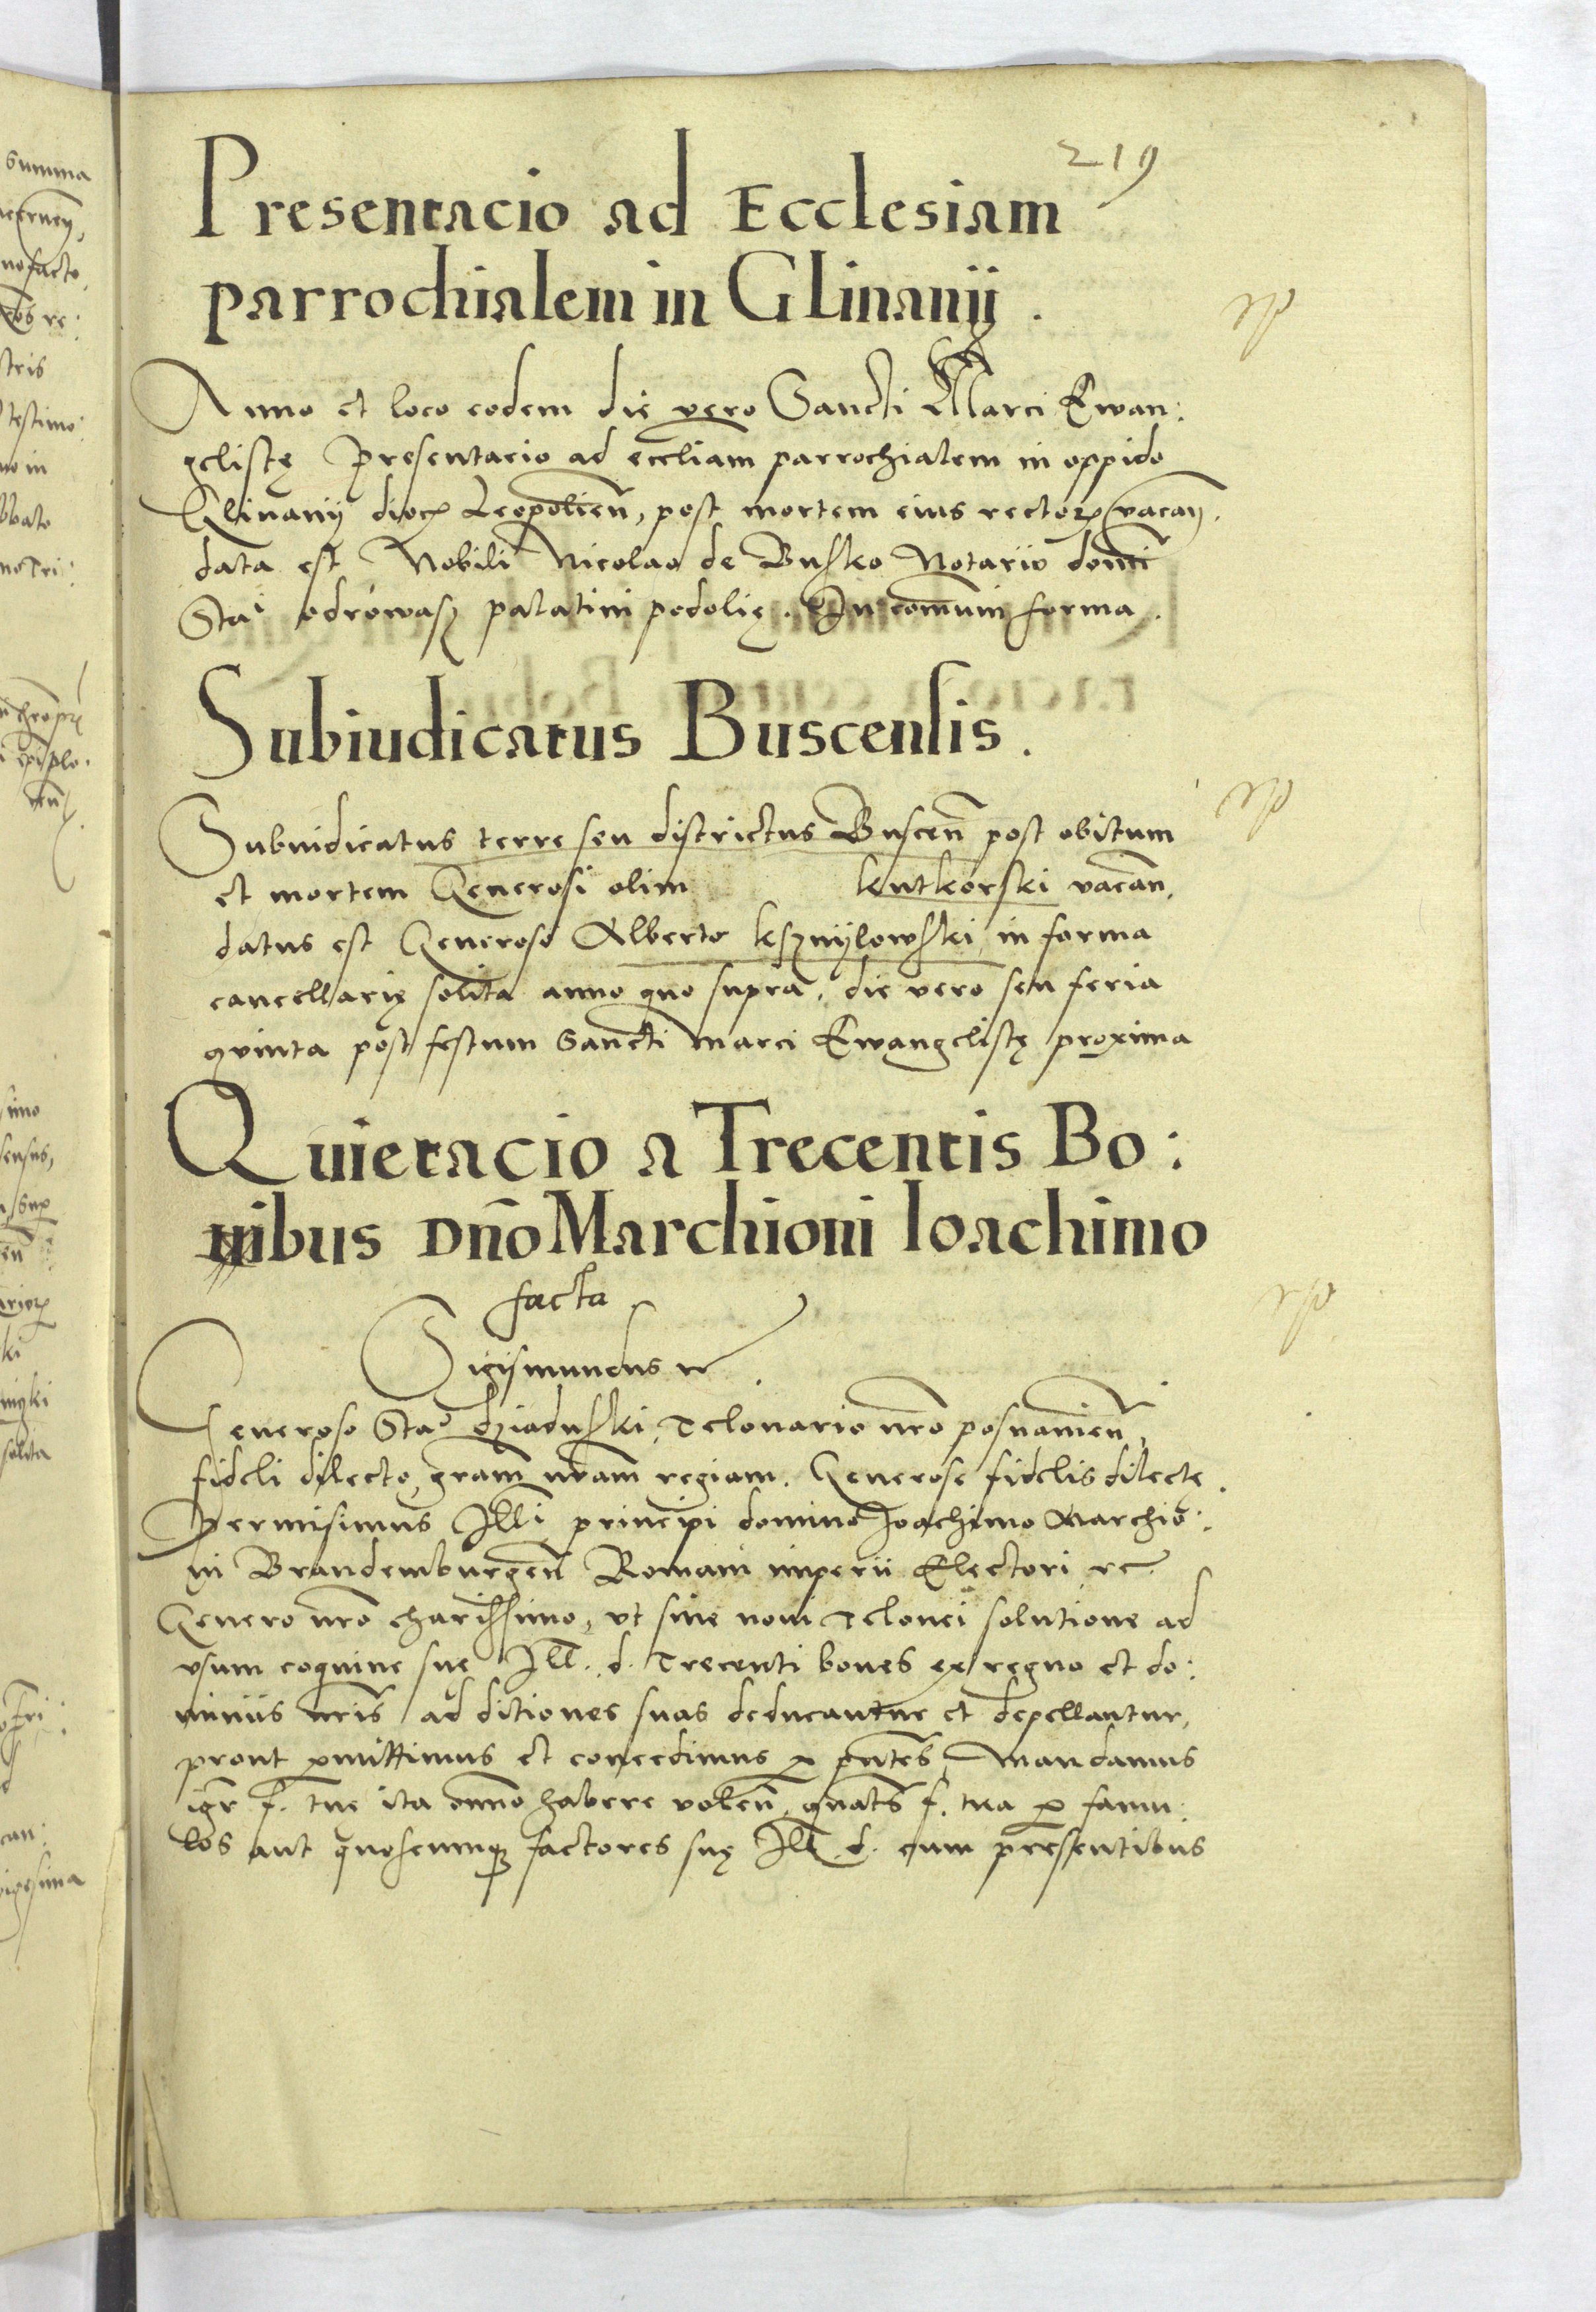 219
Presentacio ad Ecclesiam
parrochialem in Glinanij.
Anno et loco eodem die vero Sancti Marci Ewan:
gelistę Presentacio ad eccliam parrochialem in oppido
Glinanij dioc Leopolien̄, post mortem eius rectoris vacan̄.
data est Nobili Nicolao de Busko Notario domi
Stai odrowasz palatini podolię. In comuni forma.
Subiudicatus Buscensis.
Subiudicatus terre seu districtus Buscen̄ post obitum
et mortem Generosi olim kutkorski vacan̄.
datus est Generoso Alberto ksznijlowski, in forma
cancellarię solita anno quo supra, die vero seu feria
quinta post festum Sancti Marci Ewangelistę proxima
Quietacio a Trecentis Bo:
nibus Dn̄o Marchioni Ioachimo
facta
Sigismundus r
Generoso Stai dziaduski, Telonario nr̄o posnanien̄,
fideli dilecto, gram̄ nr̄am regiam. Generose fidelis dilectę.
Permisimus Illi principi domino Joachimo Marchio:
ni Brandemburgen̄ Romani imperii Electori rc
Genero nr̄o charissimo, vt sine novi Telonei solutione ad
vsum coquine sue Ill. d. Trecenti boves ex regno et do:
miniis nr̄is ad ditiones suas deducantur et depellantur,
prout pmittimus et concedimus p pn̄tes, Mandamus
igr̄ f. tue ita omnino habere volen̄, quats f. tua p famu
los aut quoscumque factores suę Ill. d. cum presentibus